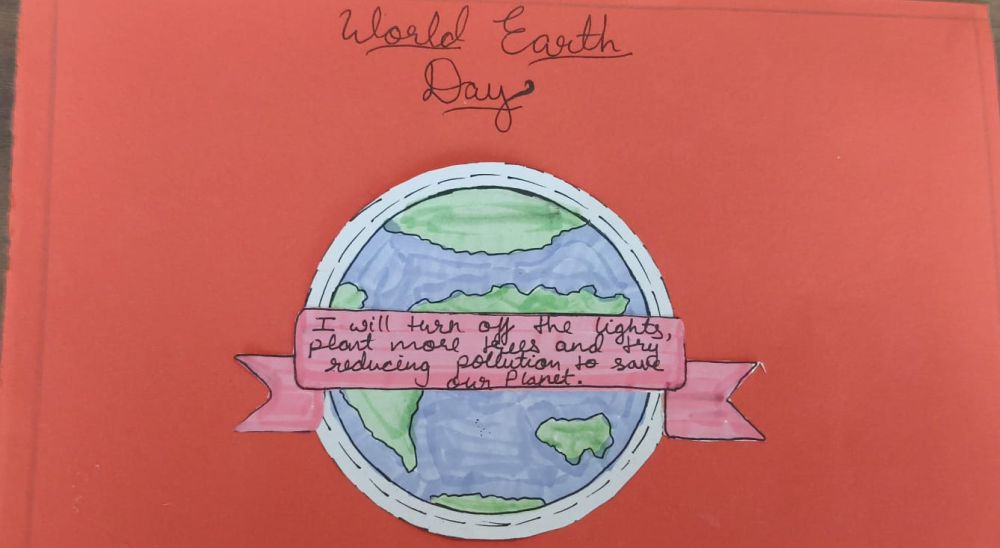 World Earth
Day
I will turn off the lights,
plant more trees and try
reducing pollution to save
our Planet.